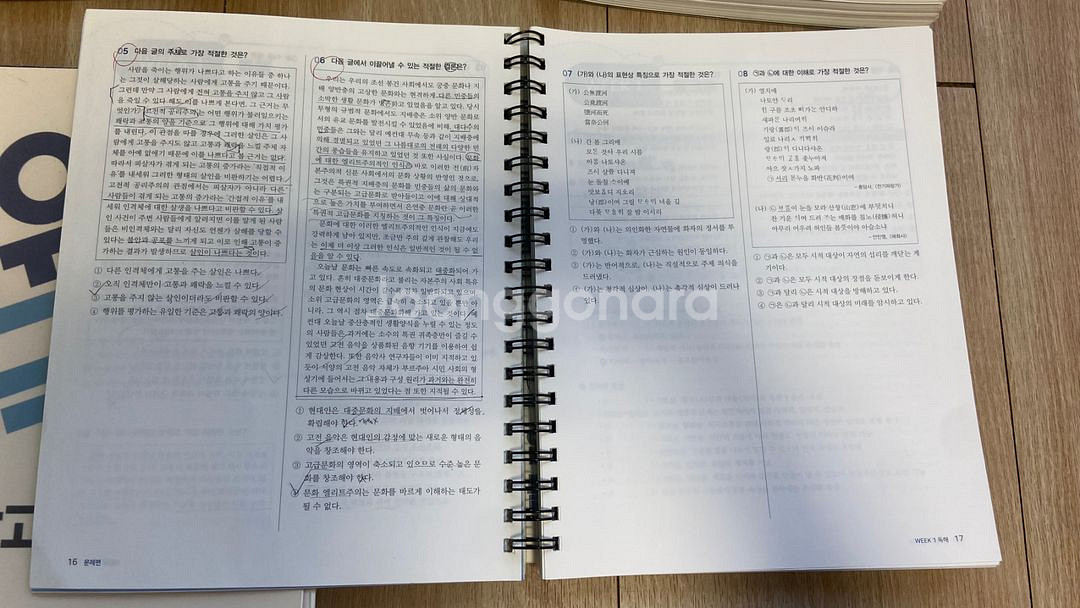 05 다음 글의 주제로 가장 적절한 것은?
사람을 죽이는 행위가 나쁘다고 하는 이유들 중 하나
는 그것이 살해당하는 사람에게 고통을 주기 때문이다.
그런데 만약 그 사람에게 전혀 고통을 주지 않고 그 사람
을 죽일 수 있다 해도 이를 나쁘게 본다면, 그 근거는 무
엇인가? 고전적 공리주의는 어떤 행위가 불러일으키는
쾌락과 고통의 양을 기준으로 그 행위에 대해 가치 평가
를 내린다. 이 관점을 따를 경우에 그러한 살인은 그 사
람에게 고통을 주지도 않고 고통과 쾌락을 느낄 주체 자
체를 아예 없애기 때문에 이를 나쁘다고 볼 근거는 없다.
따라서 피살자가 겪게 되는 고통의 증가라는 '직접적 이
유'를 내세워 그러한 형태의 살인을 비판하기는 어렵다.
고전적 공리주의의 관점에서는 피살자가 아니라 다른
사람들이 겪게 되는 고통의 증가라는 '간접적 이유'를 내
세워 인격체에 대한 살생을 나쁘다고 비판할 수 있다. 살
인 사건이 주변 사람들에게 알려지면 이를 알게 된 사람
들은 비인격체와는 달리 자신도 언젠가 살해를 당할 수
있다는 불안과 공포를 느끼게 되고 이로 인해 고통이 증
가하는 결과가 발생하므로 살인이 나쁘다는 것이다.
① 다른 인격체에게 고통을 주는 살인은 나쁘다.
② 오직 인격체만이 고통과 쾌락을 느낄 수 있다.
③ 고통을 주지 않는 살인이더라도 비판할 수 있다.
④ 행위를 평가하는 유일한 기준은 고통과 쾌락의 양이다.
06 다음 글에서 이끌어낼 수 있는 적절한 것은?
우리는 우리의 조선 봉건 사회에서도 궁중 문화나 지
배 양반층의 고상한 문화와는 현격하게 다른 민중들의
소박한 생활 문화가 있었음을 알고 있다. 당시
무형의 규범적 문화에서도 지배층은 소위 양반 문화로
서의 유교 문화를 발전시킬 수 있었음에 비해, 대다수의
민중들은 그와는 달리 예컨대 무속 등과 같이 지배층에
의해 경멸되고 있었던 그 나름대로의 전래의 다양한 민
간의 풍습들을 유지하고 있었던 것 또한 사실이다. 문화
에 대한 엘리트주의적인 인식은 바로 이러한 전(前)자
본주의적 신분 사회에서의 문화 상황의 반영인 것으로,
그것은 특권적 지배층의 문화를 민중들의 삶의 문화와
는 구분되는 고급문화로 받아들이고 이에 대해 상대적
으로 높은 가치를 부여하면서 은연중 문화란 곧 이러한
특권적 고급문화를 지칭하는 것이 그 특징이다.
문화에 대한 이러한 엘리트주의적인 인식이 지금에도
강력하게 남아 있지만, 조금만 주의 깊게 관찰해도 우리
는 이제 더 이상 그러한 인식은 일반적인 것이 될 수 없
음을 알 수 있다.
오늘날 문화는 빠른 속도로 속화되고 대중화되어 가
고 있다. 흔히 대중문화라고 불리는 자본주의 사회 특유
의 문화 현상이 시간이
소위 고급문화의 영역은 급속히 축소되고 있을 뿐만 아
니라, 그 역시 점차 대중문화화해 가고 있는 것이다. 예
컨대 오늘날 중산층적인 생활양식을 누릴 수 있는 정도
의 사람들은 과거에는 소수의 특권 귀족층만이 즐길 수
있었던 고전 음악을 상품화된 음향 기기를 이용하여 쉽
게 감상한다. 또한 음악사 연구자들이 이미 지적하고 있
듯이 서양의 고전 음악 자체가 부르주아 시민 사회의 형
성기에 들어서는 그 내용과 구성 원리가 과거와는 완전히
다른 모습으로 바뀌고 있었다는 점 또한 지적될 수 있다.
① 현대인은 대중문화의 지배에서 벗어나서 정체성을
확립해야 한다.
② 고전 음악은 현대인의 감정에 맞는 새로운 형태의 음
악을 창조해야 한다.
③ 고급문화의 영역이 축소되고 있으므로 수준 높은 문
화를 창조해야 한다.
④ 문화 엘리트주의는 문화를 바르게 이해하는 태도가
될 수 없다.
16 문제편
07 (가)와 (나)의 표현상 특징으로 가장 적절한 것은?
(가) 公無渡河
公竟渡河
墮河而死
當奈公何
(나) 간 봄 그리매
모든 것사 우리 시름
아름 나토샤온
즈시 살쯈 디니져
눈 돌칠 ᄉᆞ이예
맛보옵디 지소리
① (가)와 (나)는 의인화한 자연물에 화자의 정서를 투
영했다.
② (가)와 (나)는 화자가 근심하는 원인이 동일하다.
③ (가)는 반어적으로, (나)는 직설적으로 주제 의식을
드러냈다.
④ (가)는 청각적 심상이, (나)는 촉각적 심상이 드러나
있다.
08 ㉠과 ㉡에 대한 이해로 가장 적절한 것은?
(가) 열치매
나토얀 ᄃᆞ리
힌 구룸 조초 ᄠᅥ가는 안디하
새파란 나리여희
① ㉠과 ㉡은 모두 시적 대상이 자연의 섭리를 깨닫는 계
기이다.
② ㉠과 ㉡은 모두 시적 대상의 장점을 돋보이게 한다.
③ ㉠과 달리 ㉡은 시적 대상을 방해하고 있다.
④ ㉠은 ㉡과 달리 시적 대상의 미래를 암시하고 있다.
WEEK 1 독해 17